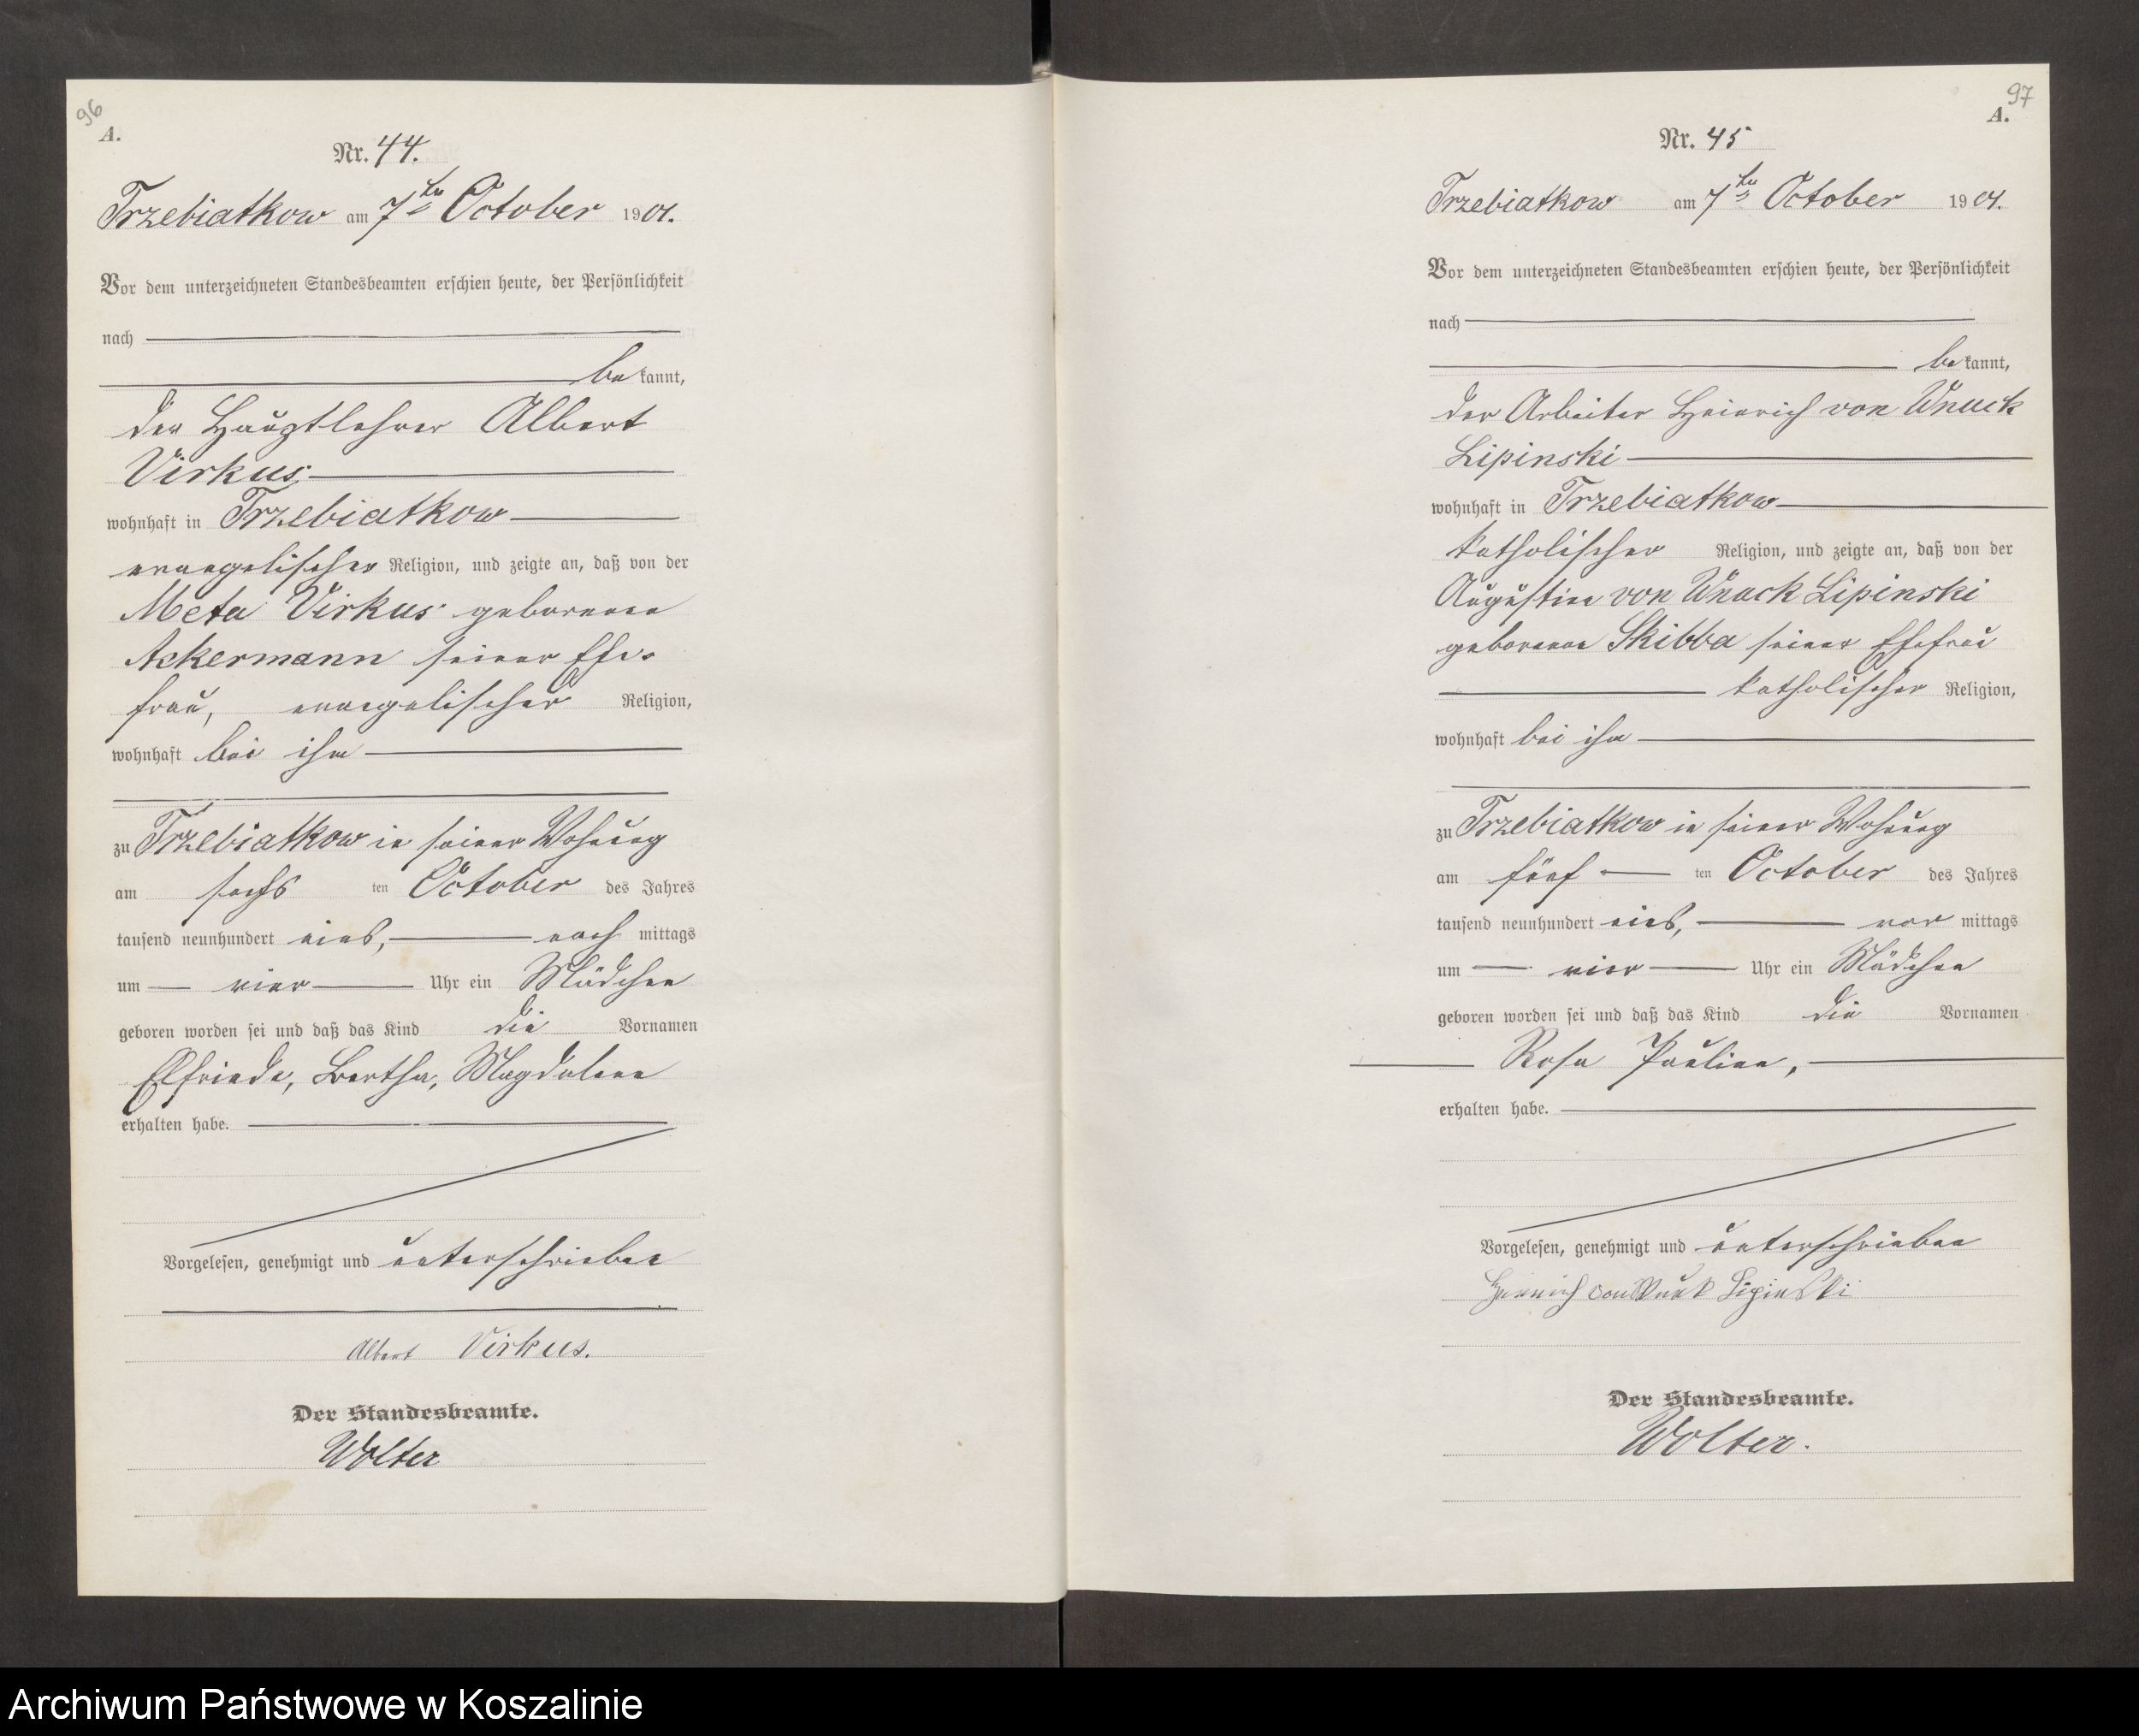 96
A.
Nr. 44.
Trzebiatkow am 7ten October 1901.
Vor dem unterzeichneten Standesbeamten erschien heute, der Persönlichkeit
nach
bekannt,
der Hauptlehrer Albert
Virkus
wohnhaft in Trzebiatkow
evangelischer Religion, und zeigte an, daß von der
Meta Virkus geborenen
Ackermann seiner Ehe-
frau, evangelischer Religion,
wohnhaft bei ihm
zu Trzebiatkow in seiner Wohnung
am sechs ten October des Jahres
tausend neunhundert eins, nach mittags
um vier Uhr ein Mädchen
geboren worden sei und daß das Kind die Vornamen
Elfriede, Bertha, Magdalena
erhalten habe.
Vorgelesen, genehmigt und unterschrieben
Albert Virkus.
Der Standesbeamte.
Wolter
97
A.
Nr. 45
Trzebiatkow am 7ten October 1901.
Vor dem unterzeichneten Standesbeamten erschien heute, der Persönlichkeit
nach
bekannt,
der Arbeiter Heinrich von Wnuck
Lipinski
wohnhaft in Trzebiatkow
katholischer Religion, und zeigte an, daß von der
Augustine von Wnuck Lipinski
geborenen Skibba seiner Ehefrau
katholischer Religion,
wohnhaft bei ihm
zu Trzebiatkow in seiner Wohnung
am fünf ten October des Jahres
tausend neunhundert eins, vor mittags
um vier Uhr ein Mädchen
geboren worden sei und daß das Kind die Vornamen
Rosa Pauline,
erhalten habe.
Vorgelesen, genehmigt und unterschrieben
Heinrich von Wnuk Lipinski
Der Standesbeamte.
Wolter.
Archiwum Państwowe w Koszalinie